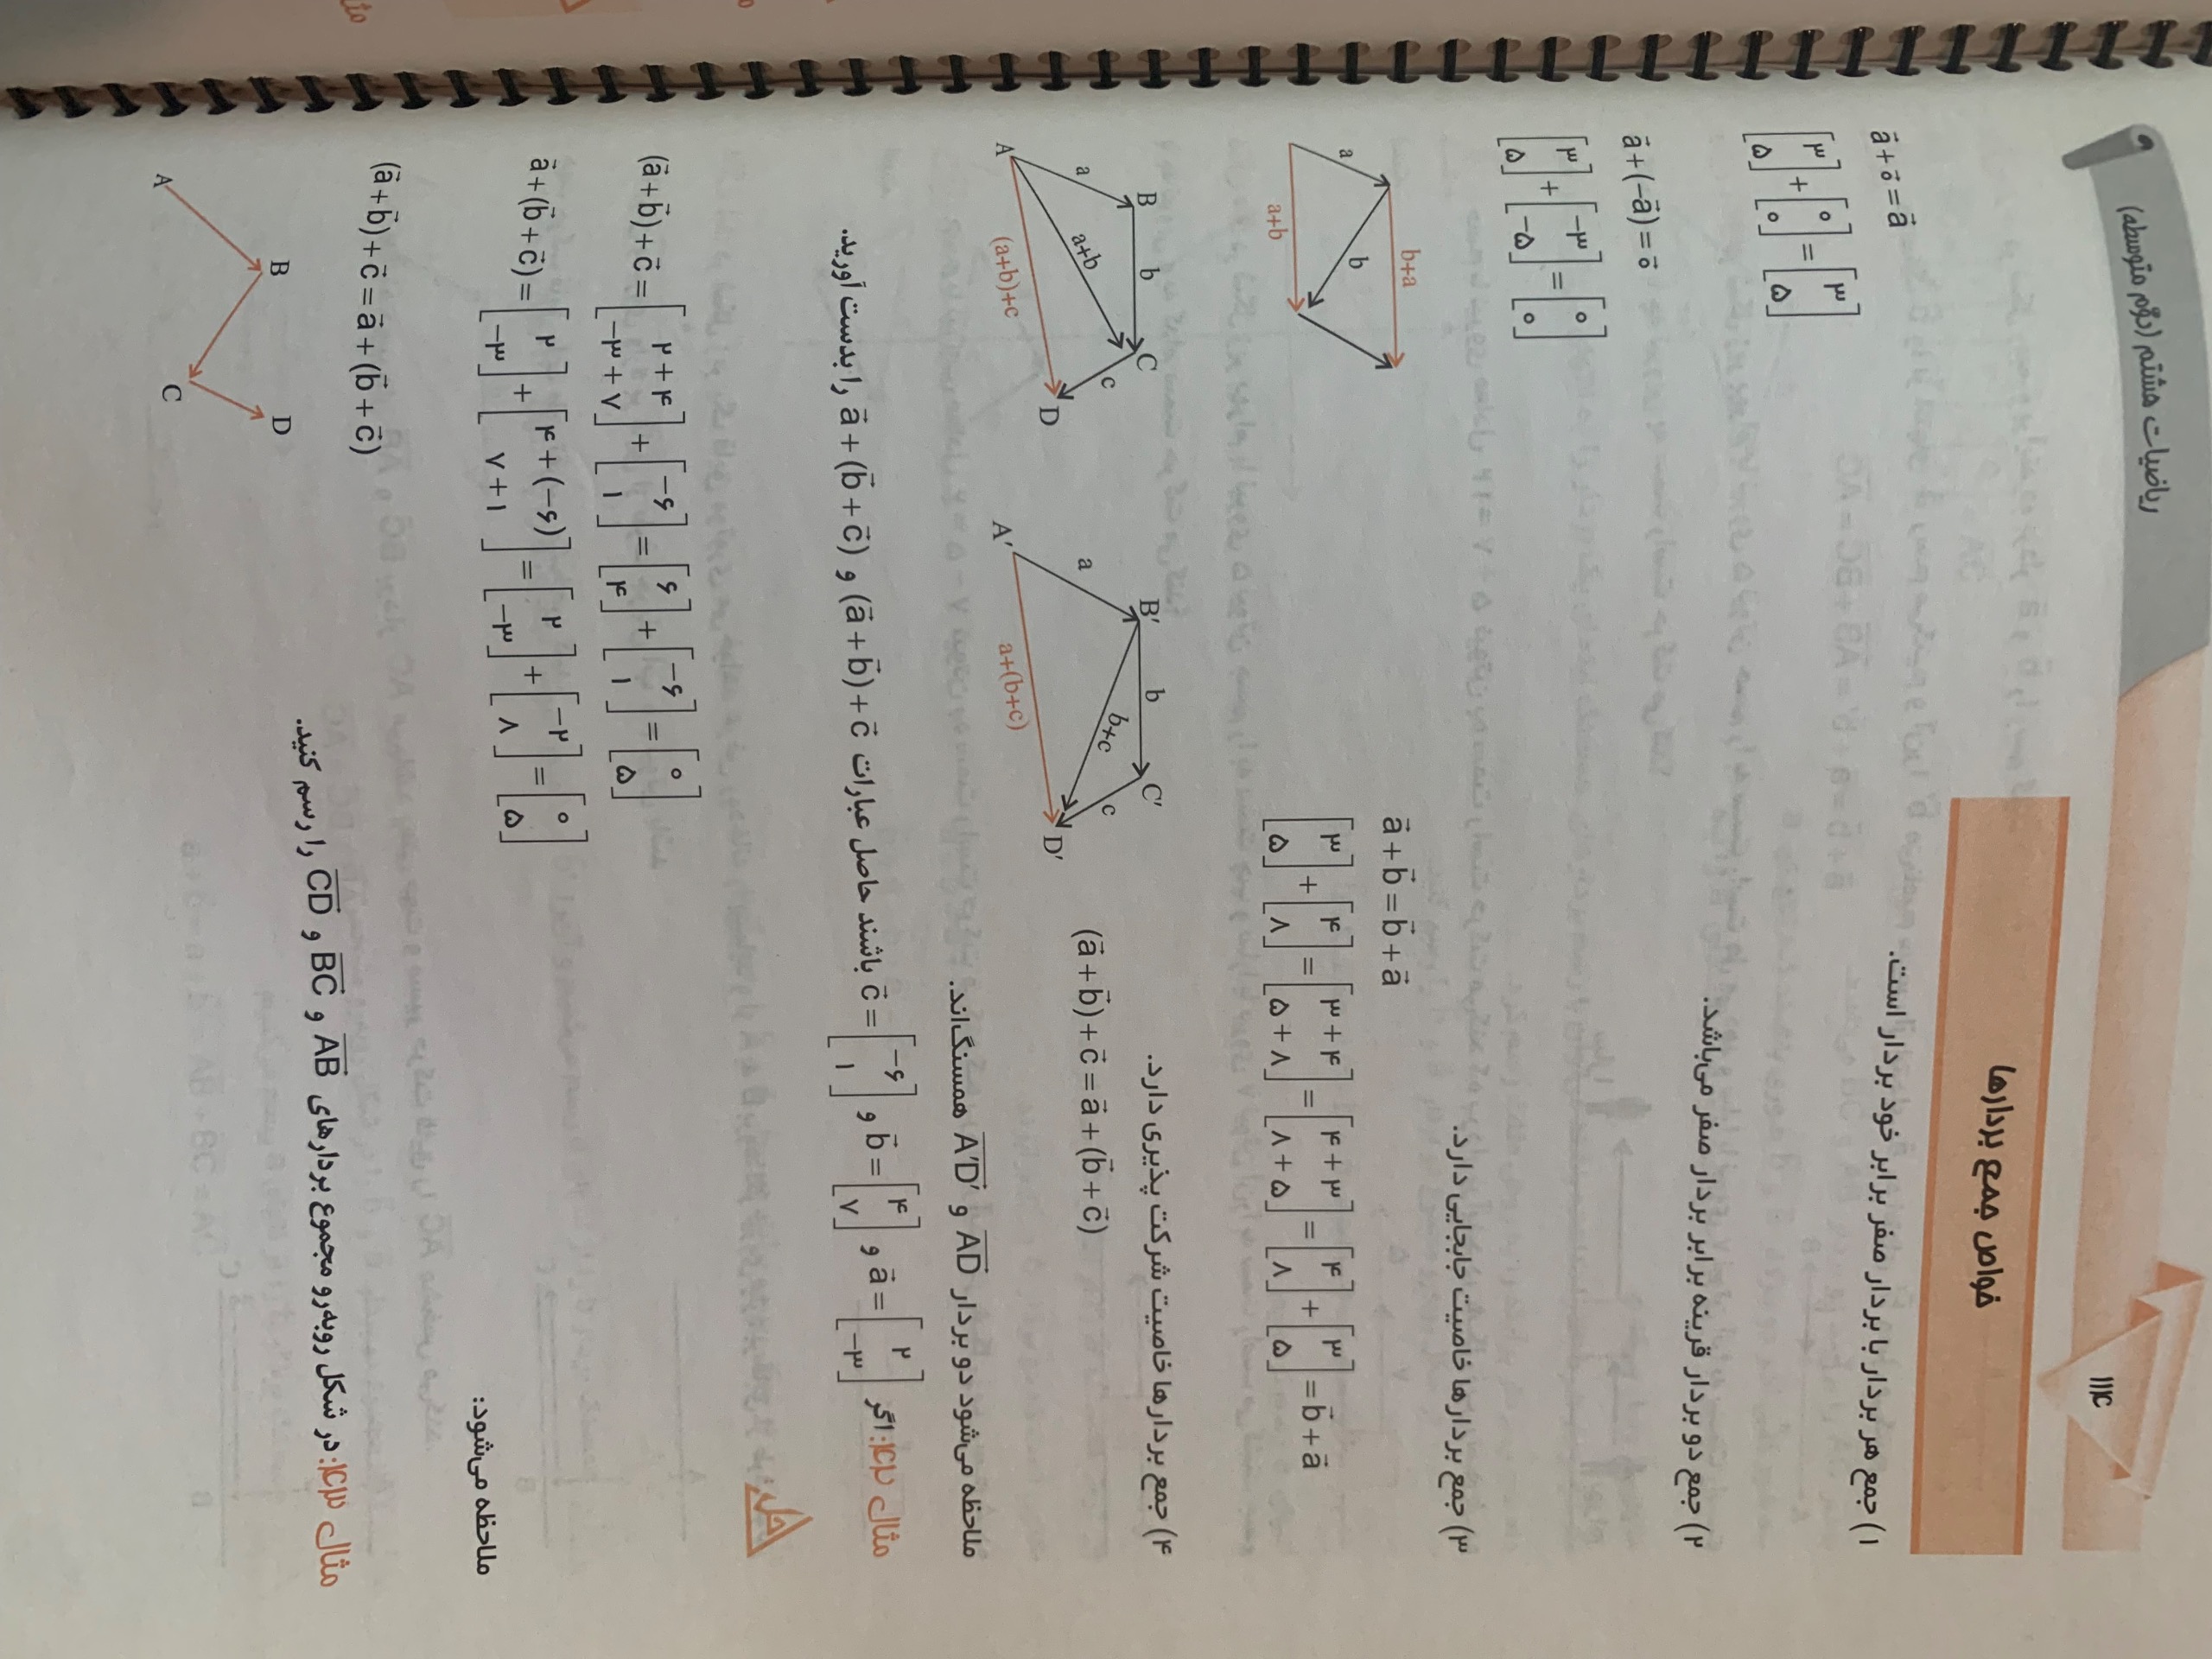 ریاضیات هشتم (دوّم متوسطه)
۱۱۴
خواص جمع بردارها
۱) جمع هر بردار با بردار صفر برابر خود بردار است.
a⃗ + o⃗ = a⃗
[۳ ۵] + [۰ ۰] = [۳ ۵]
۲) جمع دو بردار قرینه برابر بردار صفر می‌باشد.
a⃗ + (−a⃗) = o⃗
[۳ ۵] + [−۳ −۵] = [۰ ۰]
۳) جمع بردارها خاصیت جابجایی دارد.
a⃗ + b⃗ = b⃗ + a⃗
[۳ ۵] + [۴ ۸] = [۳+۴ ۵+۸] = [۴+۳ ۸+۵] = [۴ ۸] + [۳ ۵] = b⃗ + a⃗
b+a
a
b
a+b
۴) جمع بردارها خاصیت شرکت پذیری دارد.
(a⃗ + b⃗) + c⃗ = a⃗ + (b⃗ + c⃗)
B b C
a a+b c
A (a+b)+c D
B′ b C′
a b+c c
A′ a+(b+c) D′
ملاحظه می‌شود دو بردار AD و A′D′ همسنگ‌اند.
مثال ۱۴۲: اگر a⃗ = [۲ −۳] و b⃗ = [۴ ۷] و c⃗ = [−۶ ۱] باشند حاصل عبارات (a⃗ + b⃗) + c⃗ و a⃗ + (b⃗ + c⃗) را بدست آورید.
حل:
(a⃗ + b⃗) + c⃗ = [۲+۴ −۳+۷] + [−۶ ۱] = [۶ ۴] + [−۶ ۱] = [۰ ۵]
a⃗ + (b⃗ + c⃗) = [۲ −۳] + [۴+(−۶) ۷+۱] = [۲ −۳] + [−۲ ۸] = [۰ ۵]
ملاحظه می‌شود:
(a⃗ + b⃗) + c⃗ = a⃗ + (b⃗ + c⃗)
مثال ۱۴۳: در شکل روبه‌رو مجموع بردارهای AB و BC و CD را رسم کنید.
B D
A C